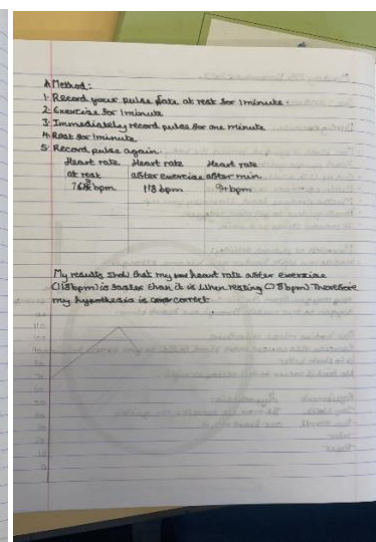 Method:
1. Record your pulse rate at rest for 1 minute.
2. Exercise for 1 minute
3. Immediately record pulse for one minute
4. Rest for 1 minute.
5. Record pulse again.
Heart rate Heart rate Heart rate
at rest after exercise after min
bpm 118 bpm 94 bpm
My results show that my heart rate after exercise
(118 bpm) is faster than it is when resting (78 bpm) Therefore
my hypothesis is correct.